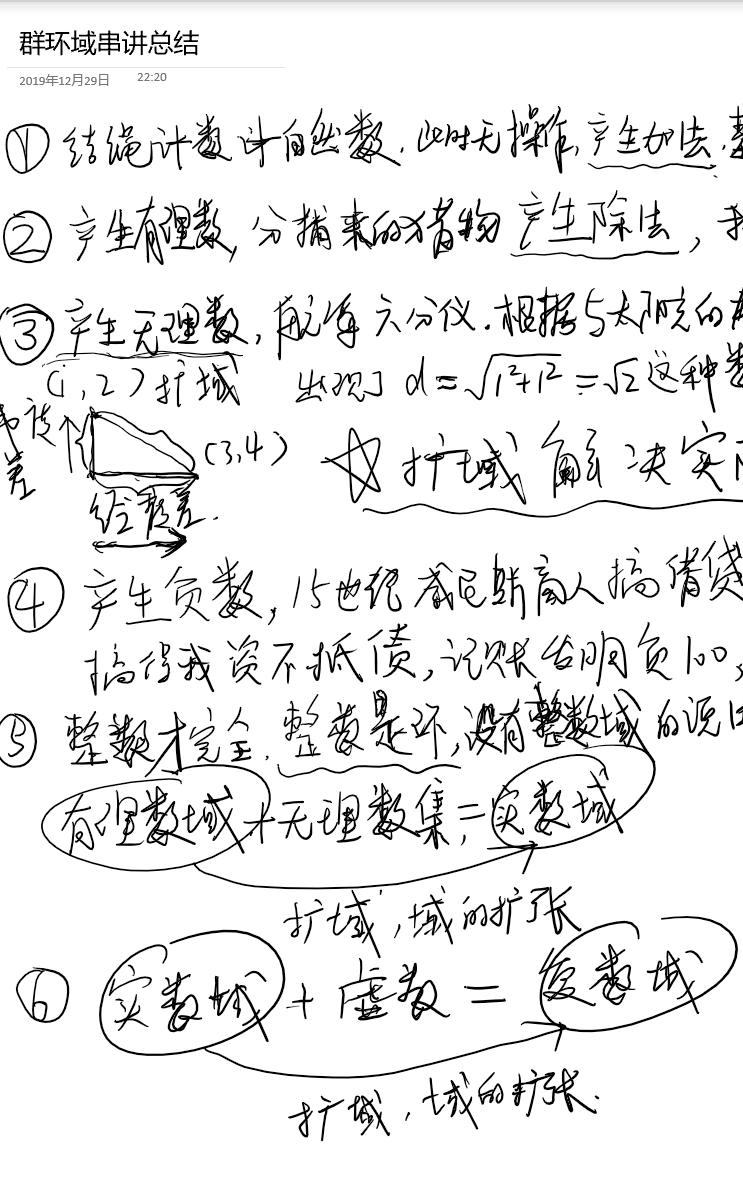 群环域串讲总结
2019年12月29日 22:20
① 结绳计数 计自然数. 此时无操作, 产生加法.
② 产生有理数, 分捕来的猎物 产生除法,
③ 产生无理数, 航海 六分仪. 根据与太阳的
(1, 2) 扩域 出现了 d = √1²+1² = √2 这种数
差 (3,4) ☆ 扩域 解决实
经度差.
④ 产生负数, 15世纪 威尼斯商人搞借贷
搞得我资不抵债, 记账发明负100,
⑤ 整数才完全. 整数是环, 没有整数域的说
有理数域 + 无理数集 = 实数域
扩域, 域的扩张
⑥ 实数域 + 虚数 = 复数域
扩域, 域的扩张.